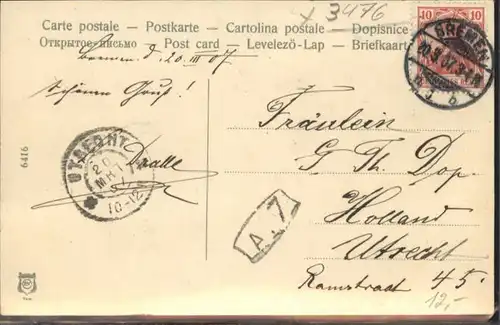 x 3476
Carte postale – Postkarte – Cartolina postale – Dopisnice
Открытое письмо – Post card – Levelezö-Lap – Briefkaart
10 10
BREMEN
Bremen d. 20 III 07
Schönen Gruß!
Dralle
UTRECHT
20
MRT
10-12
6416
Fräulein
G. Th. Dop.
Holland
Utrecht
Ramstraat 45.
A.7
12,-